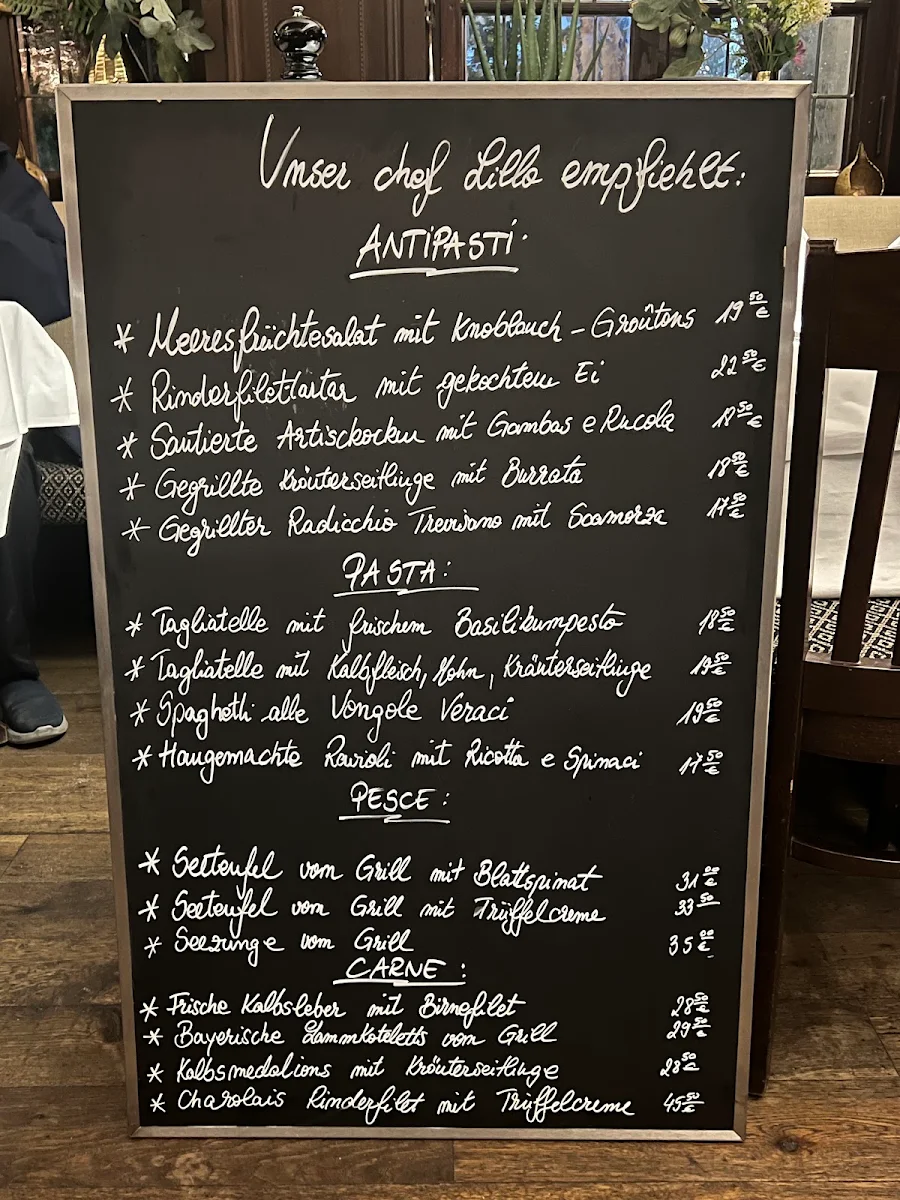 Unser chef Lillo empfiehlt:
ANTIPASTI
* Meeresfrüchtesalat mit Knoblauch - Groûtons 19 50 €
* Rinderfilettartar mit gekochtem Ei 22 50 €
* Sautierte Artischocken mit Gambas e Rucola 18 50 €
* Gegrillte Kräuterseitlinge mit Burrata 18 50 €
* Gegrillter Radicchio Trevisano mit Scamorza 17 50 €
PASTA:
* Tagliatelle mit frischem Basilikumpesto 18 50 €
* Tagliatelle mit Kalbfleisch, Mohn, Kräuterseitlinge 19 50 €
* Spaghetti alle Vongole Veraci 19 50 €
* Haugemachte Ravioli mit Ricotta e Spinaci 17 50 €
PESCE:
* Seeteufel vom Grill mit Blattspinat 31 00 €
* Seeteufel vom Grill mit Trüffelcreme 33 50
* Seezunge vom Grill 35 00 €
CARNE:
* Frische Kalbsleber mit Birnefilet 28 50 €
* Bayerische Lammkoteletts vom Grill 29 50 €
* Kalbsmedalions mit Kräuterseitlinge 28 50 €
* Charolais Rinderfilet mit Trüffelcreme 45 50 €